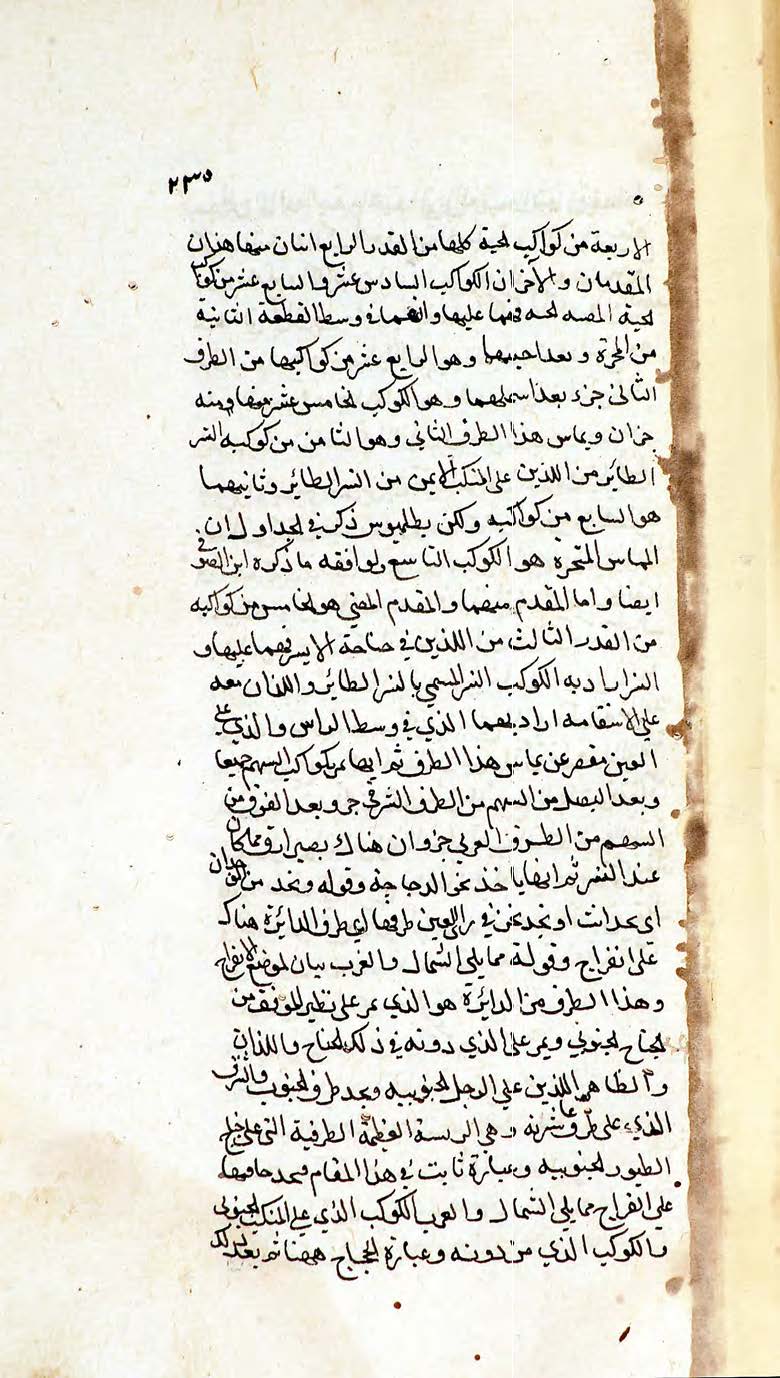 ٢٣٥
الاربعة من كواكب لحية كلها من القدر الرابع اثنان منها هذان
المقدمان والاخران الكواكب السادس عشر والسابع عشر من كواكب
لحية فهما عليها وانهما في وسط القطعة الثانية
من المجرة وبعد احديهما وهو الرابع عشر من كواكبها من الطرف
الثاني جزء بعد اسملهما وهو الكوكب الخامس عشر منها ومنه
جزان ويماس هذا الطرف الثاني وهو الثامن من كوكبه النسر
الطائر من اللذين على المنكب الايمن من النسر الطائر وثانيهما
هو السابع من كواكبه ولكن بطلميوس ذكر في الجداول ان
المماس للمجرة هو الكوكب التاسع ولوافقه ما ذكره ابن الصوفي
ايضا واما المقدم منهما والمقدم المضي هو الخامس من كواكبه
من القدر الثالث من اللذين في جناحة الايسر فهما عليها و
النسر اراد به الكوكب النير المسمى بالنسر الطائر واللذان معه
على الاستقامه اراد بهما الذي في وسط الراس والذي على
العين مقصر عن يماس هذا الطرف ثم انها تمر بكواكب السهم جميعا
وبعد النصل من السهم من الطرف الشرقي جز وبعد الفوق من
السهم من الطرف الغربي جزوان هناك يصير ارق مما كان
عند النسر ثم انها ياخذ نحو الدجاجة وقوله ونجد من
اي نجد انت او نجد نحن في راي العين طرفها اي طرف الدايرة هناك
على انفراج وقوله مما يلي الشمال والغرب بيان لموضع الانفراج
وهذا الطرف من الدايرة هو الذي يمر على نظير المرفق من
الجناح الجنوبي ويمر على الذي دونه في ذلك الجناح واللذان
الظاهر اللذين على الرجل الجنوبيه ونجد طرف الجنوب والشرق
الذي على طرف وهي الريسة العظيمة الطرفية التي على جناح
الطيور الجنوبيه وعبارة ثابت في هذا المقام ونجد حافتها
على انفراج مما يلي الشمال والغرب الكوكب الذي على المنكب الجنوبي
والكوكب الذي من دونه وعبارة الحجاج ههنا ثم بعد ذلك